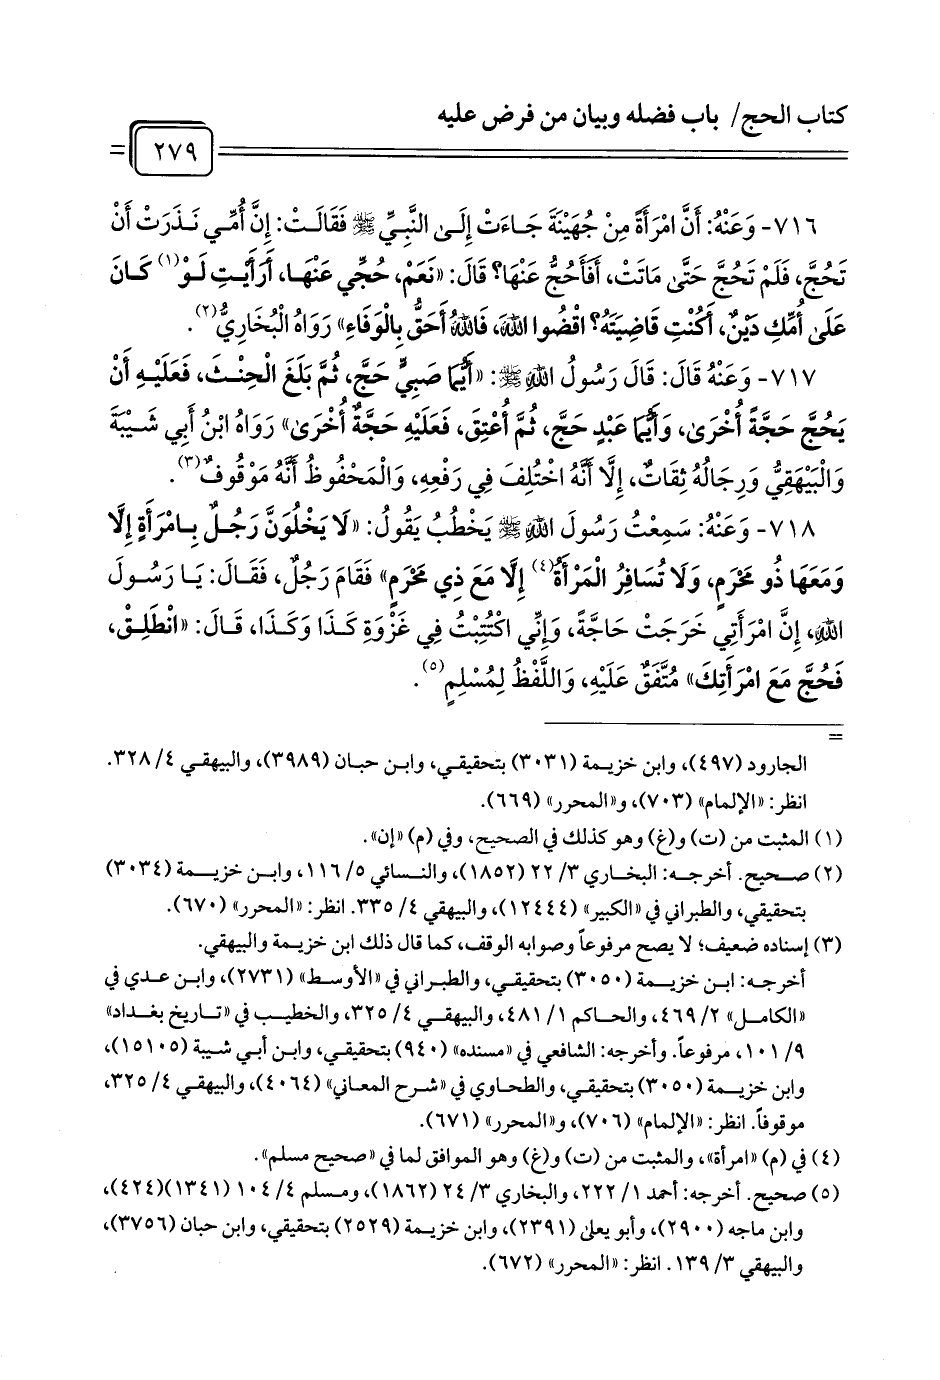 كتاب الحج/ باب فضله وبيان من فرض عليه
٢٧٩
٧١٦- وَعَنْهُ: أَنَّ امْرَأَةً مِنْ جُهَيْنَةَ جَاءَتْ إِلَى النَّبِيِّ ﷺ فَقَالَتْ: إِنَّ أُمِّي نَذَرَتْ أَنْ
تَحُجَّ، فَلَمْ تَحُجَّ حَتَّى مَاتَتْ، أَفَأَحُجُّ عَنْهَا؟ قَالَ: «نَعَمْ، حُجِّي عَنْهَا، أَرَأَيْتِ لَوْ(١) كَانَ
عَلَى أُمِّكِ دَيْنٌ، أَكُنْتِ قَاضِيَتَهُ؟ اقْضُوا اللهَ، فَاللهُ أَحَقُّ بِالْوَفَاءِ» رَوَاهُ الْبُخَارِيُّ(٢).
٧١٧- وَعَنْهُ قَالَ: قَالَ رَسُولُ اللهِ ﷺ: «أَيُّمَا صَبِيٍّ حَجَّ، ثُمَّ بَلَغَ الْحِنْثَ، فَعَلَيْهِ أَنْ
يَحُجَّ حَجَّةً أُخْرَى، وَأَيُّمَا عَبْدٍ حَجَّ، ثُمَّ أُعْتِقَ، فَعَلَيْهِ حَجَّةٌ أُخْرَى» رَوَاهُ ابْنُ أَبِي شَيْبَةَ
وَالْبَيْهَقِيُّ وَرِجَالُهُ ثِقَاتٌ، إِلَّا أَنَّهُ اخْتُلِفَ فِي رَفْعِهِ، وَالْمَحْفُوظُ أَنَّهُ مَوْقُوفٌ(٣).
٧١٨- وَعَنْهُ: سَمِعْتُ رَسُولَ اللهِ ﷺ يَخْطُبُ يَقُولُ: «لَا يَخْلُوَنَّ رَجُلٌ بِامْرَأَةٍ إِلَّا
وَمَعَهَا ذُو مَحْرَمٍ، وَلَا تُسَافِرُ الْمَرْأَةُ(٤) إِلَّا مَعَ ذِي مَحْرَمٍ» فَقَامَ رَجُلٌ، فَقَالَ: يَا رَسُولَ
اللهِ، إِنَّ امْرَأَتِي خَرَجَتْ حَاجَّةً، وَإِنِّي اكْتُتِبْتُ فِي غَزْوَةِ كَذَا وَكَذَا، قَالَ: «انْطَلِقْ،
فَحُجَّ مَعَ امْرَأَتِكَ» مُتَّفَقٌ عَلَيْهِ، وَاللَّفْظُ لِمُسْلِمٍ(٥).
=
الجارود (٤٩٧)، وابن خزيمة (٣٠٣١) بتحقيقي، وابن حبان (٣٩٨٩)، والبيهقي ٤/ ٣٢٨.
انظر: «الإلمام» (٧٠٣)، و«المحرر» (٦٦٩).
(١) المثبت من (ت) و(غ) وهو كذلك في الصحيح، وفي (م) «إن».
(٢) صحيح. أخرجه: البخاري ٣/ ٢٢ (١٨٥٢)، والنسائي ٥/ ١١٦، وابن خزيمة (٣٠٣٤)
بتحقيقي، والطبراني في «الكبير» (١٢٤٤٤)، والبيهقي ٤/ ٣٣٥. انظر: «المحرر» (٦٧٠).
(٣) إسناده ضعيف؛ لا يصح مرفوعاً وصوابه الوقف، كما قال ذلك ابن خزيمة والبيهقي.
أخرجه: ابن خزيمة (٣٠٥٠) بتحقيقي، والطبراني في «الأوسط» (٢٧٣١)، وابن عدي في
«الكامل» ٢/ ٤٦٩، والحاكم ١/ ٤٨١، والبيهقي ٤/ ٣٢٥، والخطيب في «تاريخ بغداد»
٩/ ١٠١، مرفوعاً. وأخرجه: الشافعي في «مسنده» (٩٤٠) بتحقيقي، وابن أبي شيبة (١٥١٠٥)،
وابن خزيمة (٣٠٥٠) بتحقيقي، والطحاوي في «شرح المعاني» (٤٠٦٤)، والبيهقي ٤/ ٣٢٥،
موقوفاً. انظر: «الإلمام» (٧٠٦)، و«المحرر» (٦٧١).
(٤) في (م) «امرأة»، والمثبت من (ت) و(غ) وهو الموافق لما في «صحيح مسلم».
(٥) صحيح. أخرجه: أحمد ١/ ٢٢٢، والبخاري ٣/ ٢٤ (١٨٦٢)، ومسلم ٤/ ١٠٤ (١٣٤١)(٤٢٤)،
وابن ماجه (٢٩٠٠)، وأبو يعلى (٢٣٩١)، وابن خزيمة (٢٥٢٩) بتحقيقي، وابن حبان (٣٧٥٦)،
والبيهقي ٣/ ١٣٩. انظر: «المحرر» (٦٧٢).